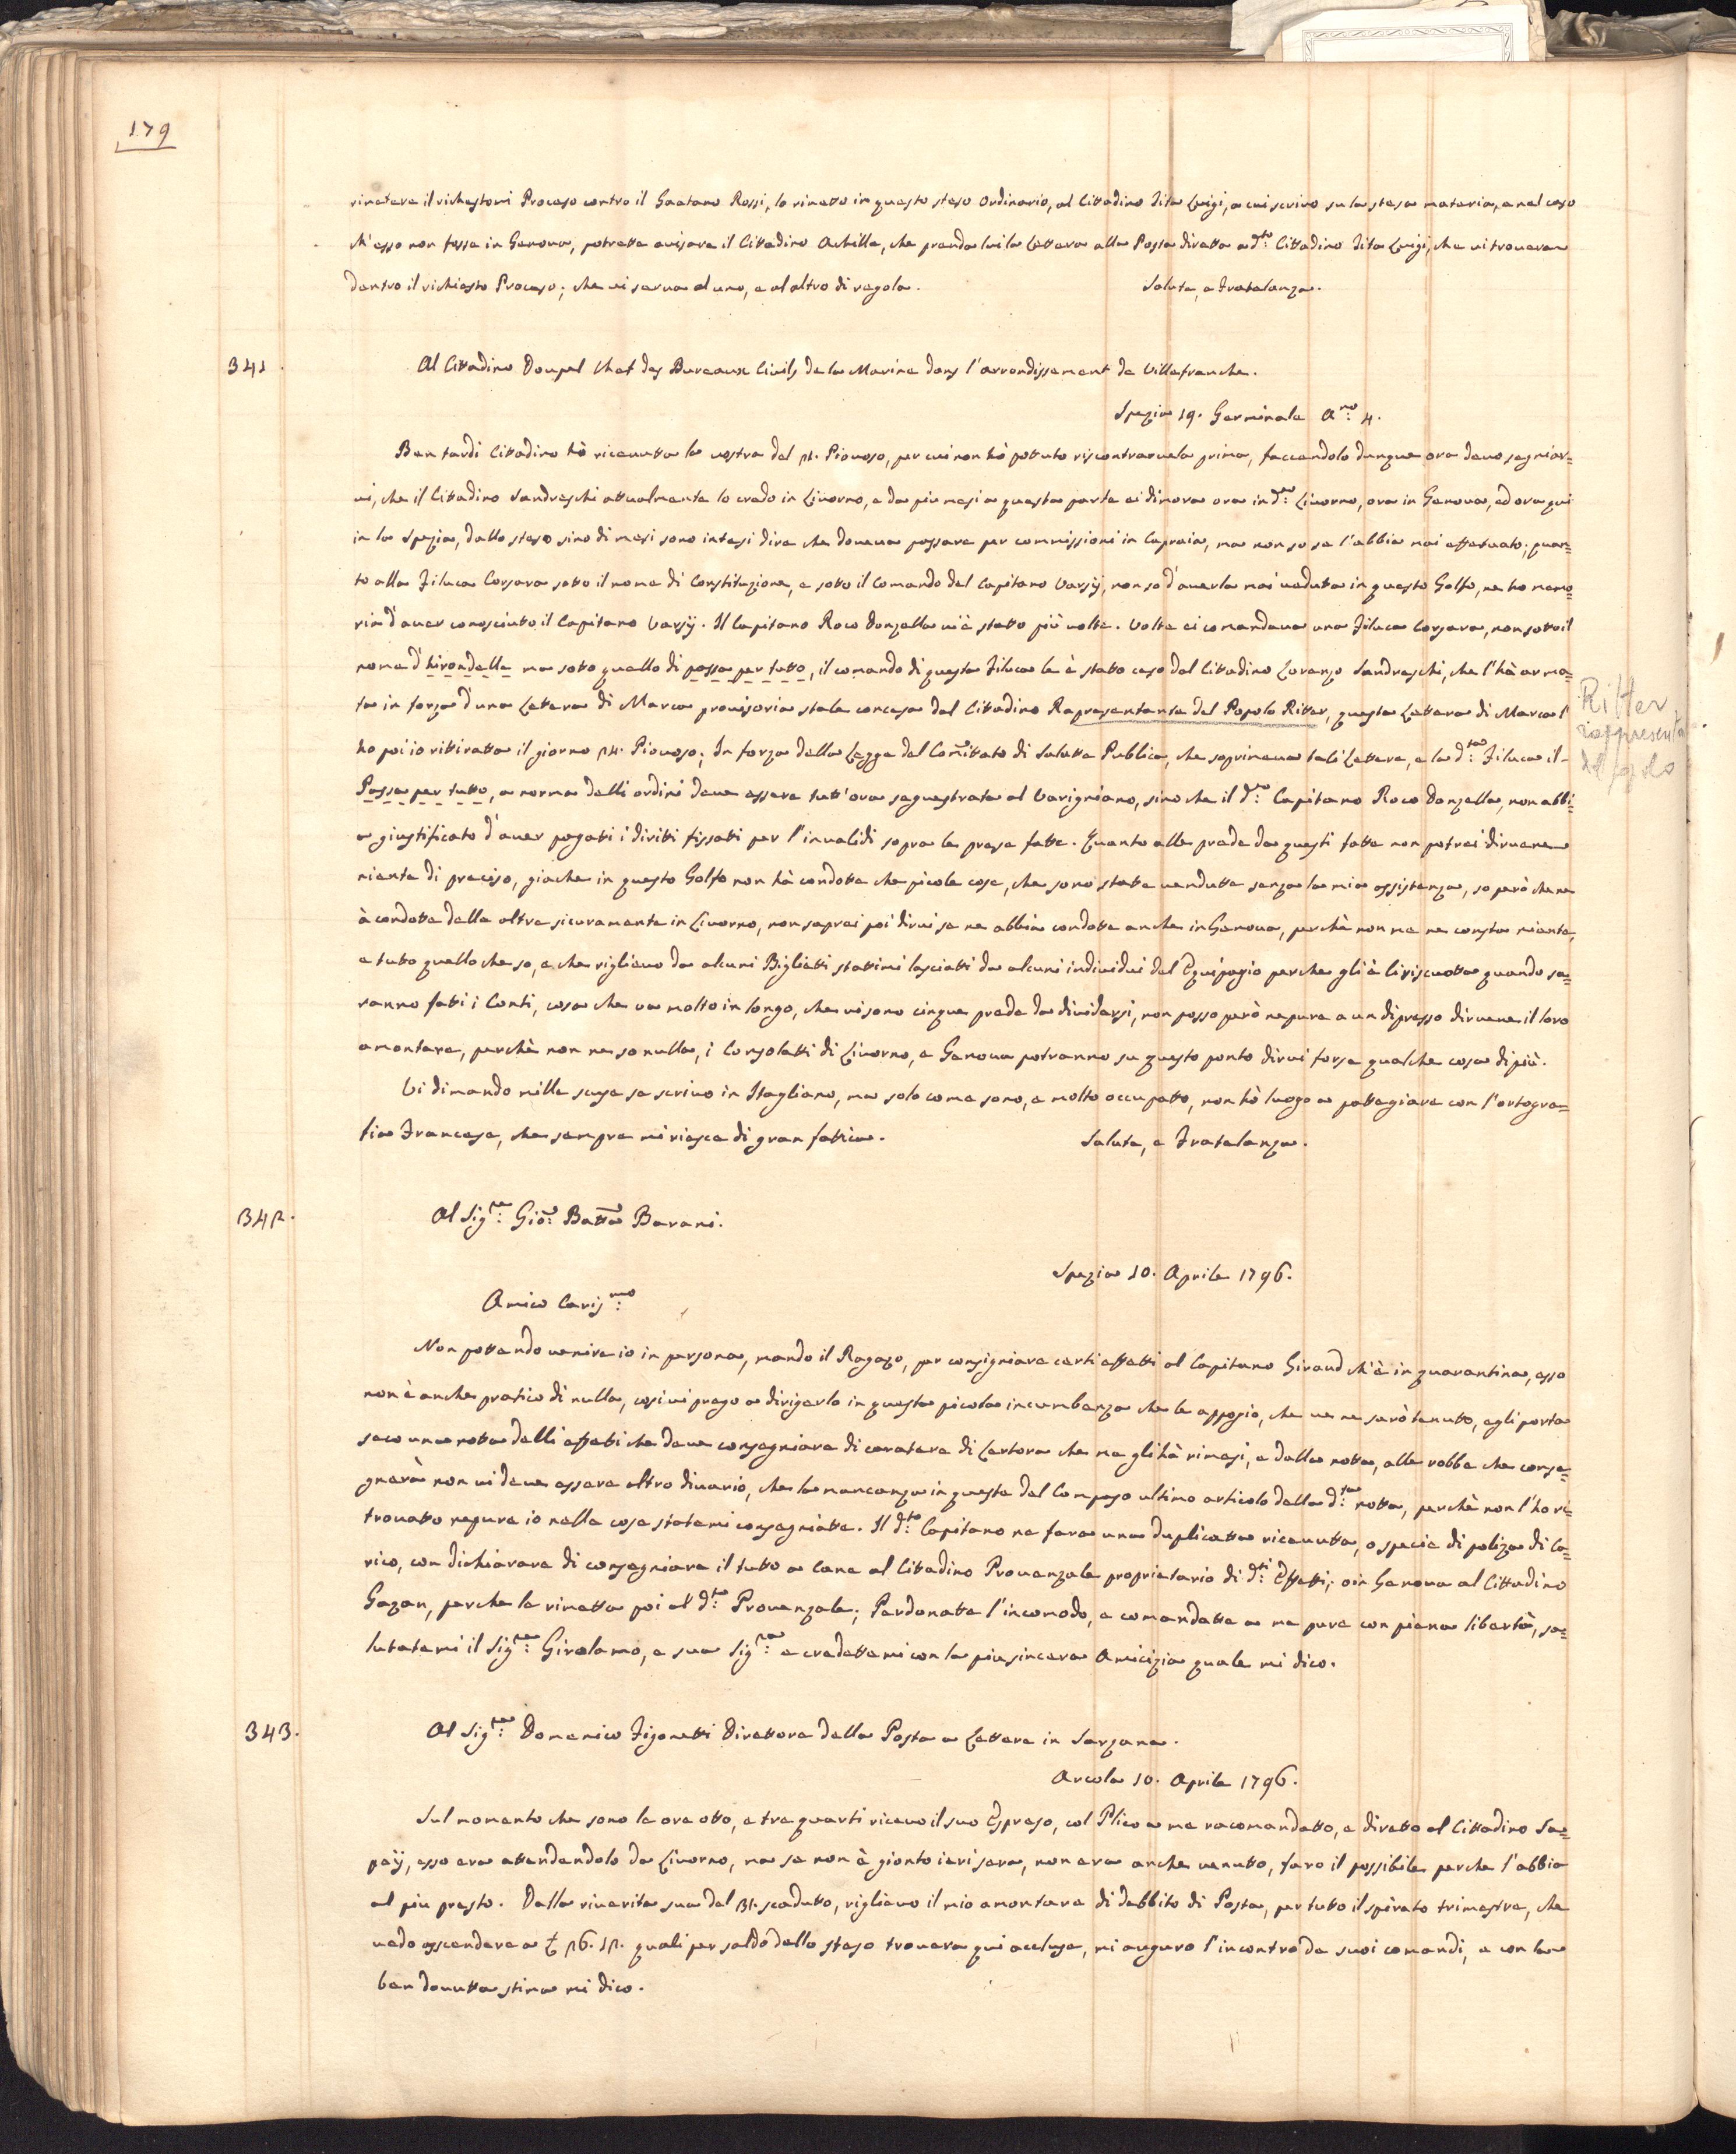 179
rimetere il richestomi Proceso contro il Gaetano Rossi, lo rimetto in questo steso Ordinario, al Cittadino Tita Luigi, a cui scrivo su la stesa materia, e nel caso
ch'esso non fosse in Genova, potrette avisare il Cittadino Achille, che prenda lui la Lettera alla Posta diretta a d.to Cittadino Tita Luigi, che vi troverea
dentro il richiesto Proceso; che vi serva al uno, e al altro di regola. Salute, e Fratelanza.
341. Al Cittadino Doupel Chef des Bureaux Civils de la Marine dans l'arrondissement de Villefranche.
Spezia 19. Germinale A.no 4.
Ben tardi Cittadino hò ricevutta la vostra del 21. Piovoso, per cui non hò pottuto riscontrarvela prima, faccendolo dunque ora devo segniar=
vi, che il Cittadino Sandreschi attualmente lo credo in Livorno, e da più mesi a questa parte ei dimora ora in d.o Livorno, ora in Genova, ed ora qui
in la Spezia, dallo steso sino di mesi sono intesi dire che doveva passare per commissioni in Capraia, ma non so se l'abbia mai effetuato. quan=
to alla Filuca Corsara sotto il nome di Constituzione, e sotto il Comando del Capitano Varsÿ, non so d'averla mai veduta in questo Golfo, ne ho memo=
ria d'aver conosciuto il Capitano Varsÿ. Il Capitano Roco Donzella vi è statto più volte. Volte ei comandava una Filuca Corsara, non sotto il
nome d'hirondelle ma sotto quello di passa per tutto, il comando di questa Filuca le è statto ceso dal Cittadino Lorenzo Sandreschi, che l'hà arma=
ta in forza d'una Lettera di Marca provisoria stale concesa dal Cittadino Rapresentante del Popolo Ritter, questa Lettera di Marca l'
ho poi io ritiratta il giorno 24. Piovoso; In forza della Legge del Comittato di Salutte Publica, che soprimeva tali Lettere, e la d.ta Filuca il-
Passa per tutto, a norma delli ordini deve essere tutt'ora sequestrata al Varigniano, sino che il d.to Capitano Roco Donzella, non abbi=
a giustificato d'aver pagatti i diritti fissatti per l'invalidi sopra le prese fatte. Quanto alle prede da questi fatte non potrei dirvene
niente di preciso, giache in questo Golfo non hà condotte che picole cose, che sono statte vendutte senza la mia assistenza, so però che ne
à condotte delle altre sicuramente in Livorno, non saprei poi dirvi se ne abbia condotte anche in Genova, perchè non me ne consta niente,
e tutto quello che so, e che riglievo da alcuni Biglietti stattimi lasciatti da alcuni individui del Equipagio perche gli è li riscuotta quando sa=
ranno fatti i Conti, cosa che va molto in longo, che vi sono cinque prede da dividersi, non posso però nepure a un dipresso dirvene il loro
amontare, perchè non ne so nulla, i Consolatti di Livorno, e Genova potranno su questo ponto dirvi forse qualche cosa di più.
Vi dimando mille scuse se scrivo in Itagliano, ma solo come sono, e molto occupatto, non hò luogo a pattegiare con l'ortogra=
fia Francese, che sempre mi riesce di gran fattica. Salute, e Fratelanza.
Ritter
rappresenta
del popolo
342. Al Sig.re Gio: Batta Barani.
Spezia 10. Aprile 1796.
Amico Caris.mo
Non pottendo venire io in persona, mando il Ragazo, per consigniare certi effetti al Capitano Giraud ch'è in quarantina, esso
non è anche pratico di nulla, cosi vi prego a dirigerlo in questa picola incumbenza che le appogio, che ve ne sarò tenuto, egli porta
seco una notta delli effetti che deve consegniare di caratere di Lertora che me gli hà rimesi, e dalla notta, alle robbe che conse=
gnerà non vi deve essere altro divario, che la mancanza in queste del Compaso ultimo articolo della d.ta notta, perchè non l'ho ri=
trovatto nepure io nelle cose statemi consegniatte. Il d.to Capitano ne fara una duplicatta ricevutta, o specie di poliza di Ca=
rico, con dichiarare di consegniare il tutto a Cane al Cittadino Provenzale proprietario di d.ti Effetti; o in Genova al Cittadino
Gazan, perche le rimetta poi al d.to Provenzale; Perdonatte l'incomodo, e comandatte a me pure con piena libertà, sa=
lutatemi il Sig.re Girolamo, e sua Sig.ra e credettemi con la piu sincera Amicizia quale mi dico.
343. Al Sig.re Domenico Figonetti Direttore della Posta a Lettere in Sarzana.
Arcola 10. Aprile 1796.
Sul momento che sono le ore otto, e tre quarti ricevo il suo Espreso, col Plico a me racomandatto, e diretto al Cittadino Sa=
peÿ, esso era attendendolo da Livorno, ma se non è gionto ieri sera, non era anche venutto, faro il possibile perche l'abbia
al piu presto. Dalla riverita sua del 31. scadutto, riglievo il mio amontare di debbito di Posta, per tutto il spirato trimestre, che
vedo asscendere a £ 26. 12. quali per saldo dello steso trovera qui accluse, mi auguro l'incontro de suoi comandi, e con la
ben dovutta stima mi dico.